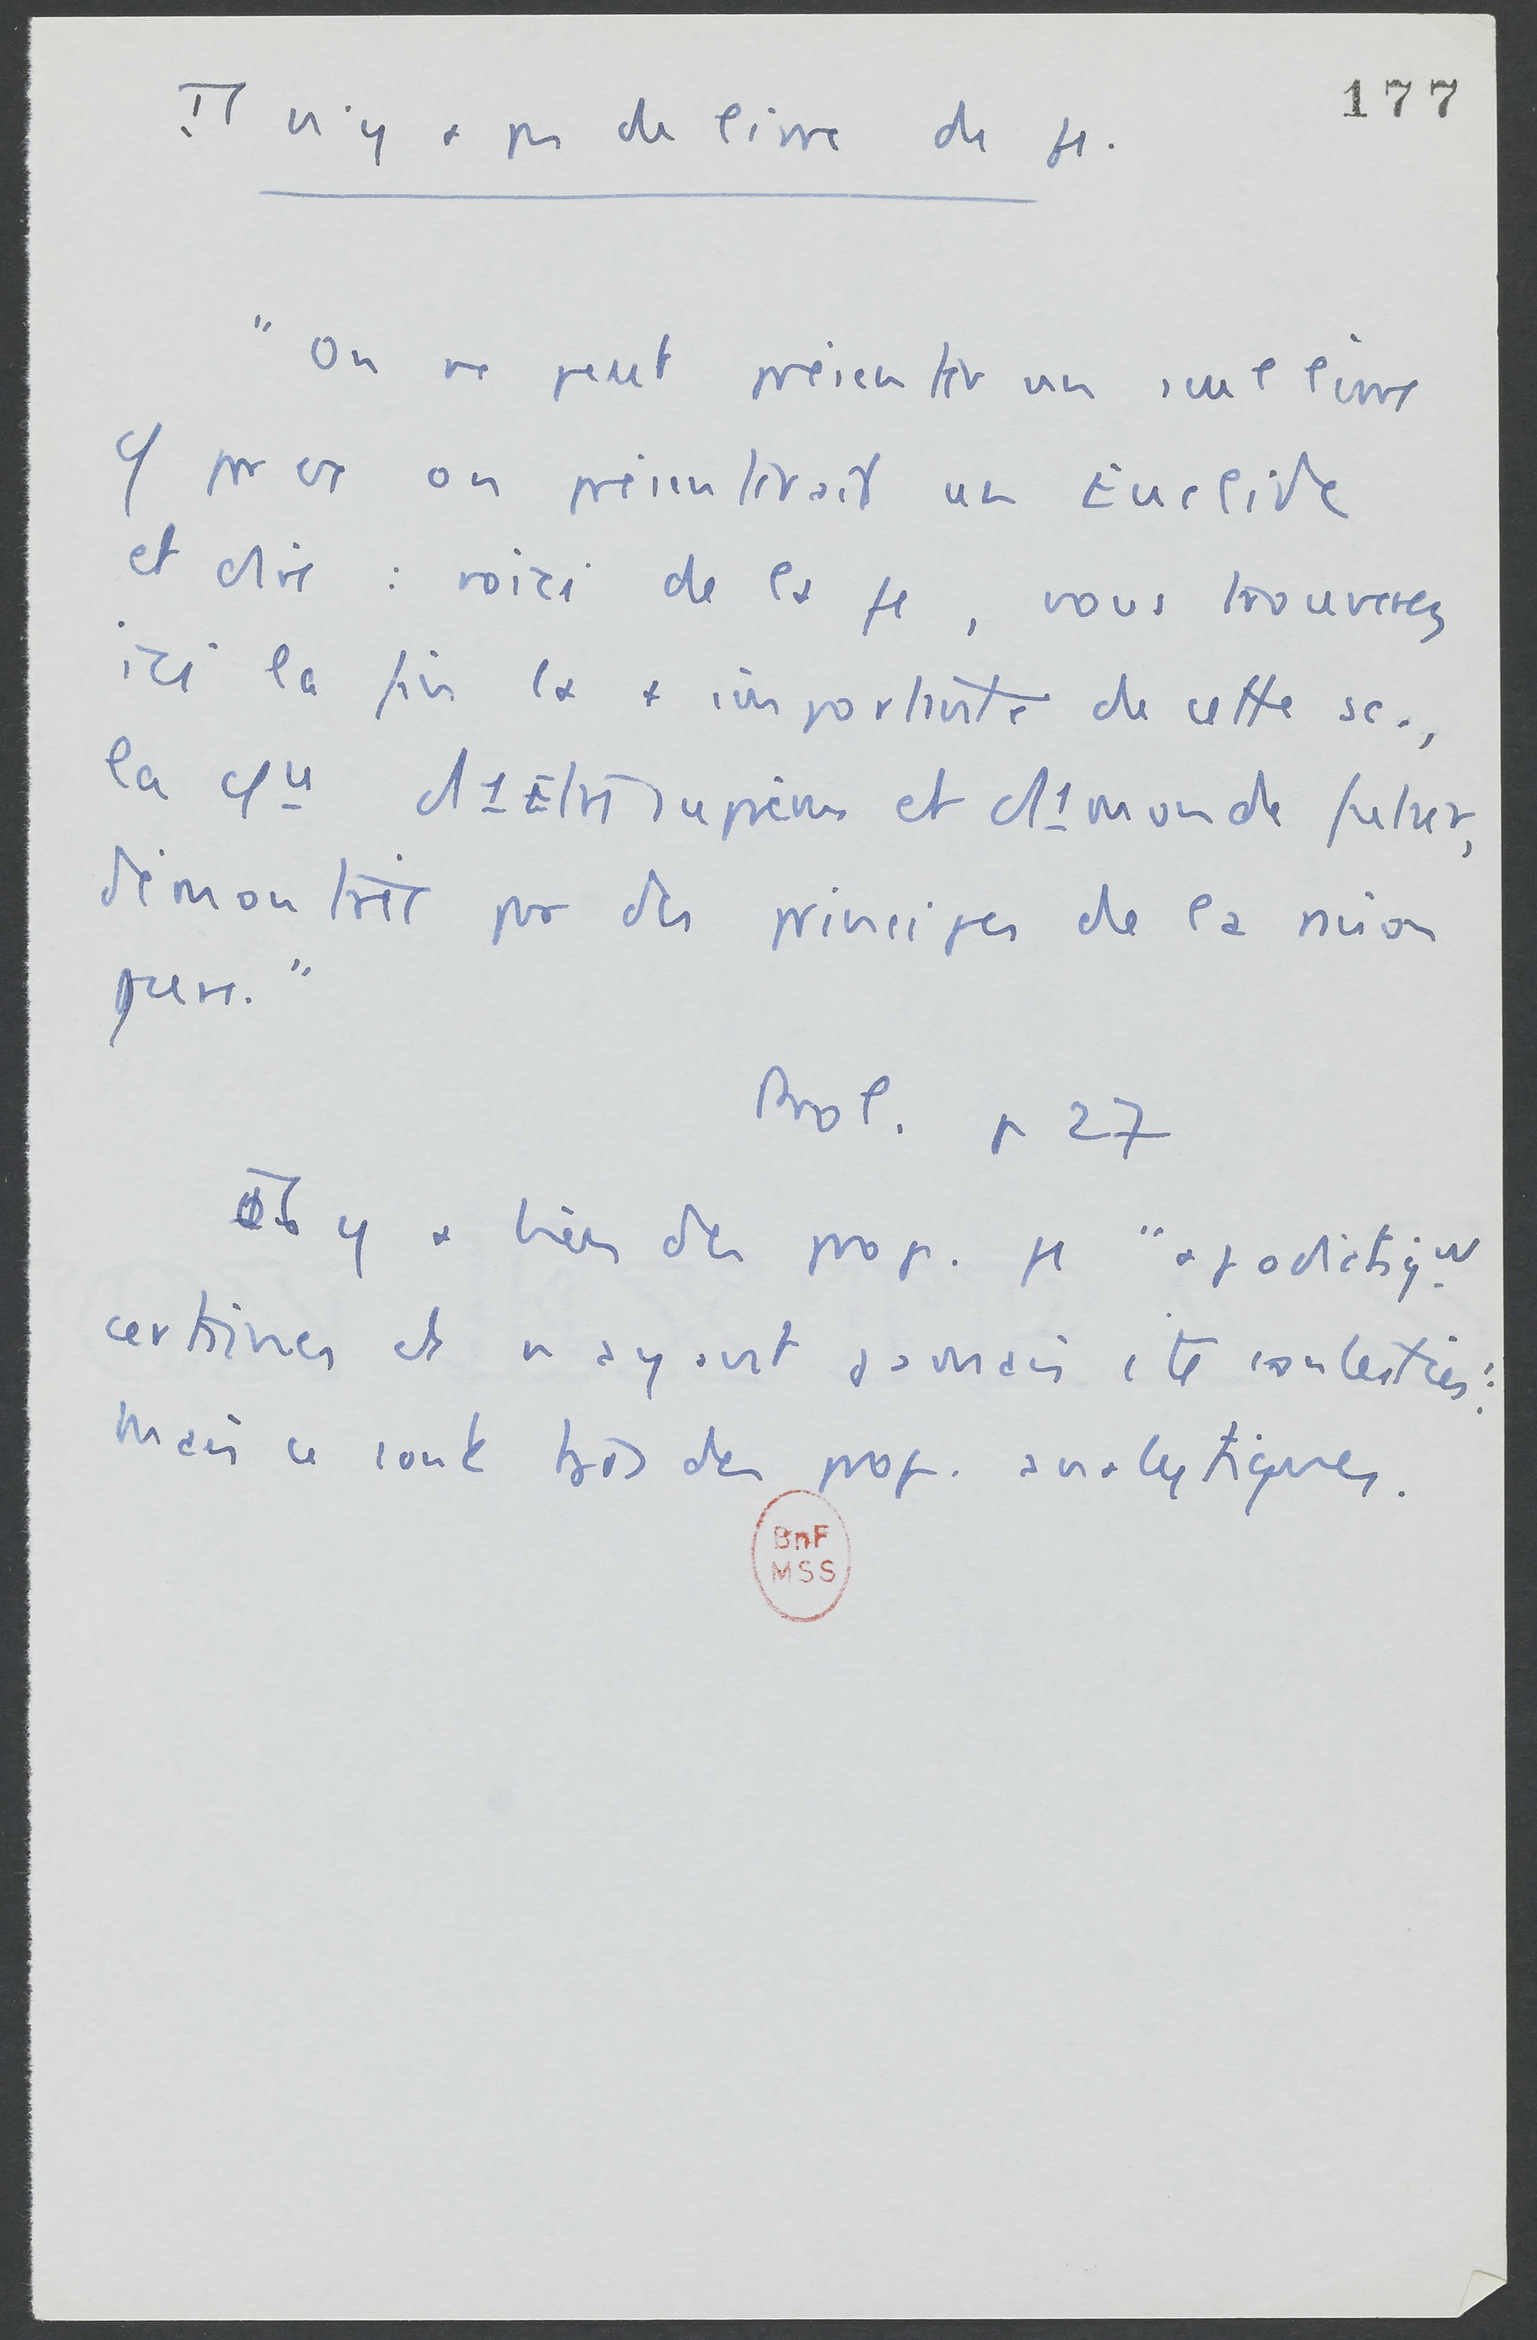 177
Il n'y a pas de livre de φe.
"On ne peut présenter un seul livre
cf par ex on présenterait un Euclide
et dire : voici de la φe, vous trouverez
ici la fin la + importante de cette sc.,
la cce d'1 Etre suprême et d'1 monde futur,
démontrée par des principes de la raison
pure."
Prol. p 27
Il y a bien des prop. φe "apodictiqut
certaines et n'ayant jamais été contestées":
mais ce sont ts des prop. analytiques.
BnF
MSS